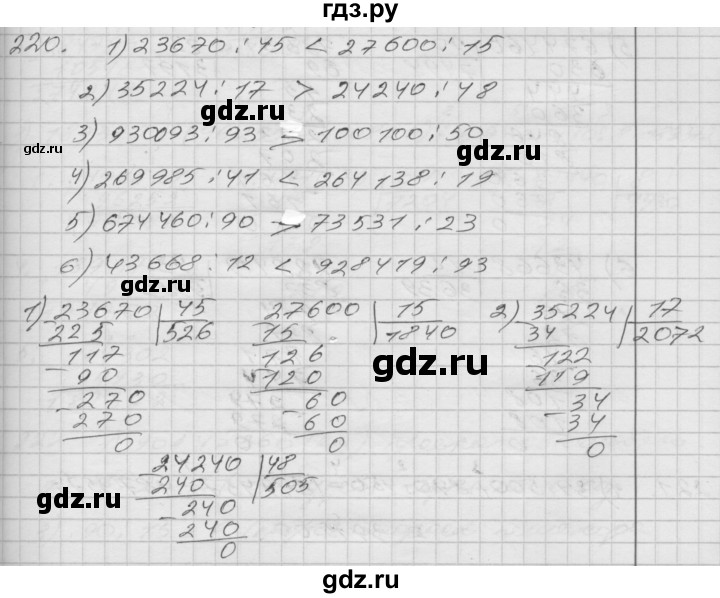 гдз.ру
220. 1) 23670 : 45 < 27600 : 15
2) 35224 : 17 > 24240 : 48
gdz.ru
3) 930093 : 93 > 100100 : 50
gdz.ru
gdz.ru
4) 269985 : 41 < 264138 : 19
5) 674460 : 90 > 73531 : 23
6) 43668 : 12 < 928419 : 93
gdz.ru
1) 23670 | 45 27600 | 15 2) 35224 | 17
225 526 15 1840 34 2072
117 126 122
90 120 119
gdz.ru
270 60 34
270 60 34
0 0 0
24240 | 48
240 505
gdz.ru
240
240
0
gdz.ru